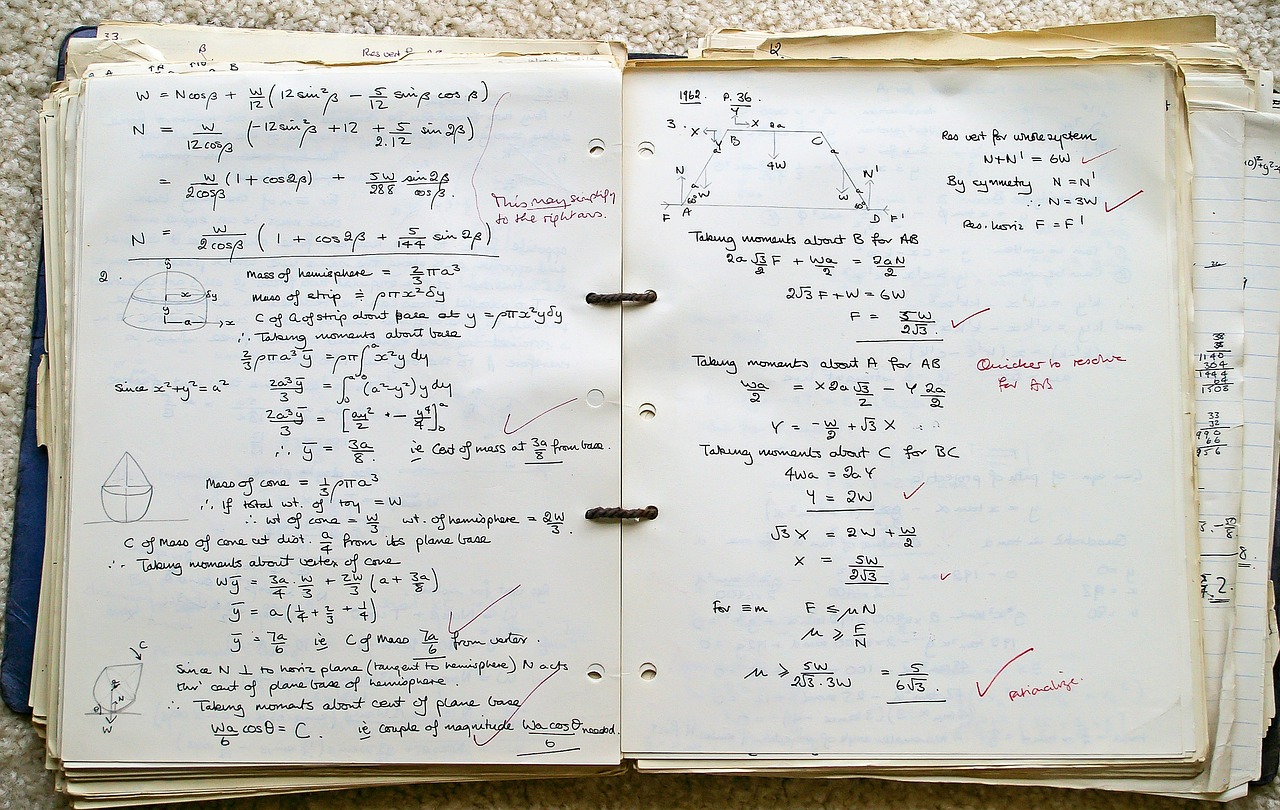 33.
β
Res vert
W = Ncosβ + W/12 (12sin²β − 5/12 sinβ cosβ)
N = W/12cosβ (−12sin²β + 12 + 5/2.12 sin2β)
= W/2cosβ (1 + cos2β) + 5W/288 sin2β/cosβ.
This may simplify
to the right ans.
N = W/2cosβ (1 + cos2β + 5/144 sin2β)
2.
Mass of hemisphere = 2/3 πa³
mass of strip ≑ ρπx²δy
C of G of strip about base at y = ρπx²yδy
∴ Taking moments about base
2/3 ρπa³ȳ = ρπ∫₀ᵃ x²y dy
Since x²+y²=a² 2a³ȳ/3 = ∫₀ᵃ (a²−y²)y dy
2a³ȳ/3 = [ay²/2 − y⁴/4]₀ᵃ
∴ ȳ = 3a/8 ie Cent of mass at 3a/8 from base.
Mass of cone = 1/3 ρπa³
∴ If total wt. of toy = W
∴ wt of cone = W/3 wt. of hemisphere = 2W/3.
C of Mass of cone at dist. a/4 from its plane base
∴ Taking moments about vertex of cone
Wȳ = 3a/4 . W/3 + 2W/3 (a + 3a/8)
ȳ = a(1/4 + 2/3 + 1/4)
ȳ = 7a/6 ie C of Mass 7a/6 from vertex.
C
Since N ⊥ to horiz plane (tangent to hemisphere) N acts
thro' cent of plane base of hemisphere.
∴ Taking moments about cent of plane base
Wa/6 cosθ = C. ie couple of magnitude Wa cosθ/6 needed.
N
θ
W
12.
1962. P. 36.
3. X Y X 2a
B C
a 4W a
N a W W a N'
F A 60° 60° D F'
Res vert for whole system
N+N' = 6W
By symmetry N = N'
∴ N = 3W
Res. horiz F = F'
Taking moments about B for AB
2a √3/2 F + Wa/2 = 2aN/2
2√3 F + W = 6W
F = 5W/2√3.
Taking moments about A for AB
Quicker to resolve
for AB
Wa/2 = X 2a √3/2 − Y 2a/2
Y = −W/2 + √3 X
Taking moments about C for BC
4Wa = 2aY
Y = 2W
√3 X = 2W + W/2
X = 5W/2√3
For ≡m F ≤ μN
μ ≥ F/N
μ ≥ 5W/2√3.3W = 5/6√3.
rationalize.
38
38
1140
304
1444
64
1508
33
32
990
66
956